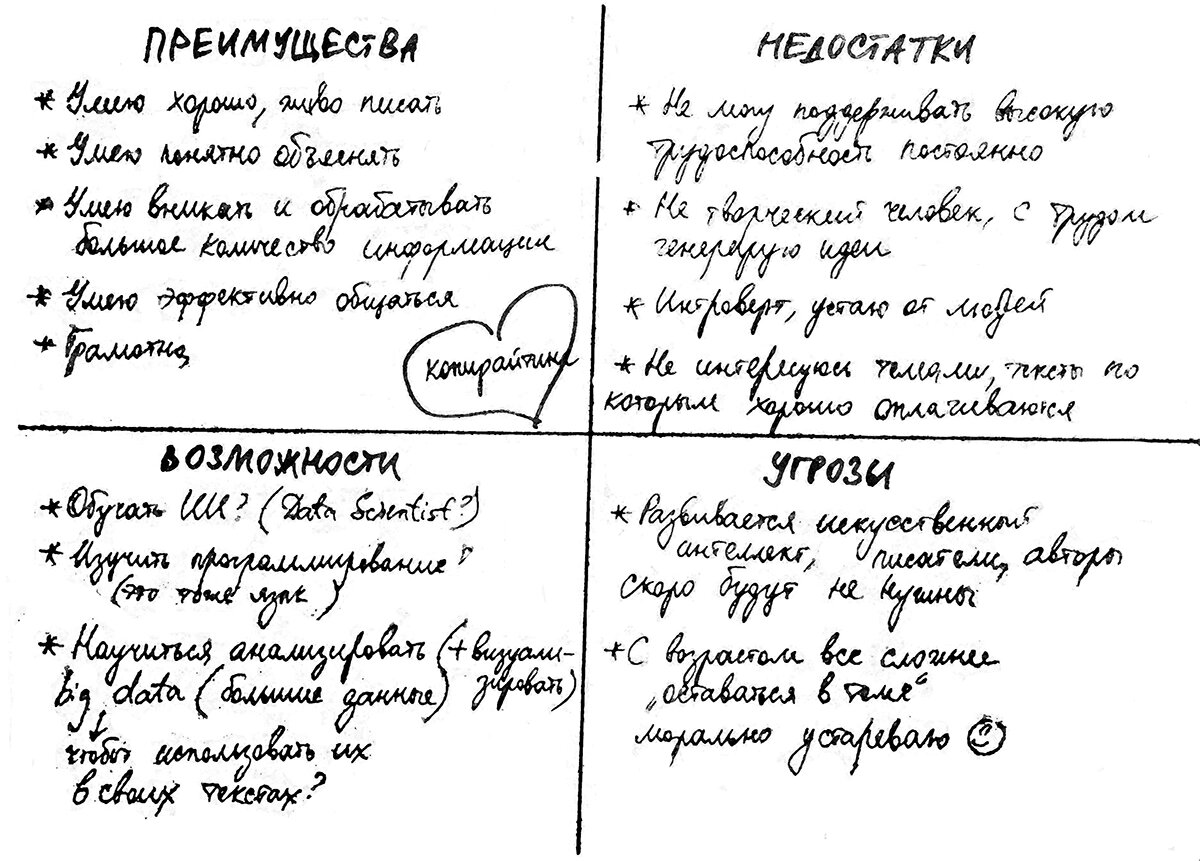 ПРЕИМУЩЕСТВА
* Умею хорошо, живо писать
* Умею понятно объяснять
* Умею вникать и обрабатывать
большое количество информации
* Умею эффективно общаться
* Грамотна
копирайтинг
НЕДОСТАТКИ
* Не могу поддерживать высокую
трудоспособность постоянно
* Не творческий человек, с трудом
генерирую идеи
* Интроверт, устаю от людей
* Не интересуюсь темами, тексты по
которым хорошо оплачиваются
ВОЗМОЖНОСТИ
* Обучать ИИ? (Data Scientist?)
* Изучить программирование?
(это тоже язык)
* Научиться анализировать (+ визуали-
зировать)
big data (большие данные)
↓
чтобы использовать их
в своих текстах?
УГРОЗЫ
* Развивается искусственный
интеллект, писатели, авторы
скоро будут не нужны
* С возрастом все сложнее
"оставаться в теме"
морально устареваю ☺